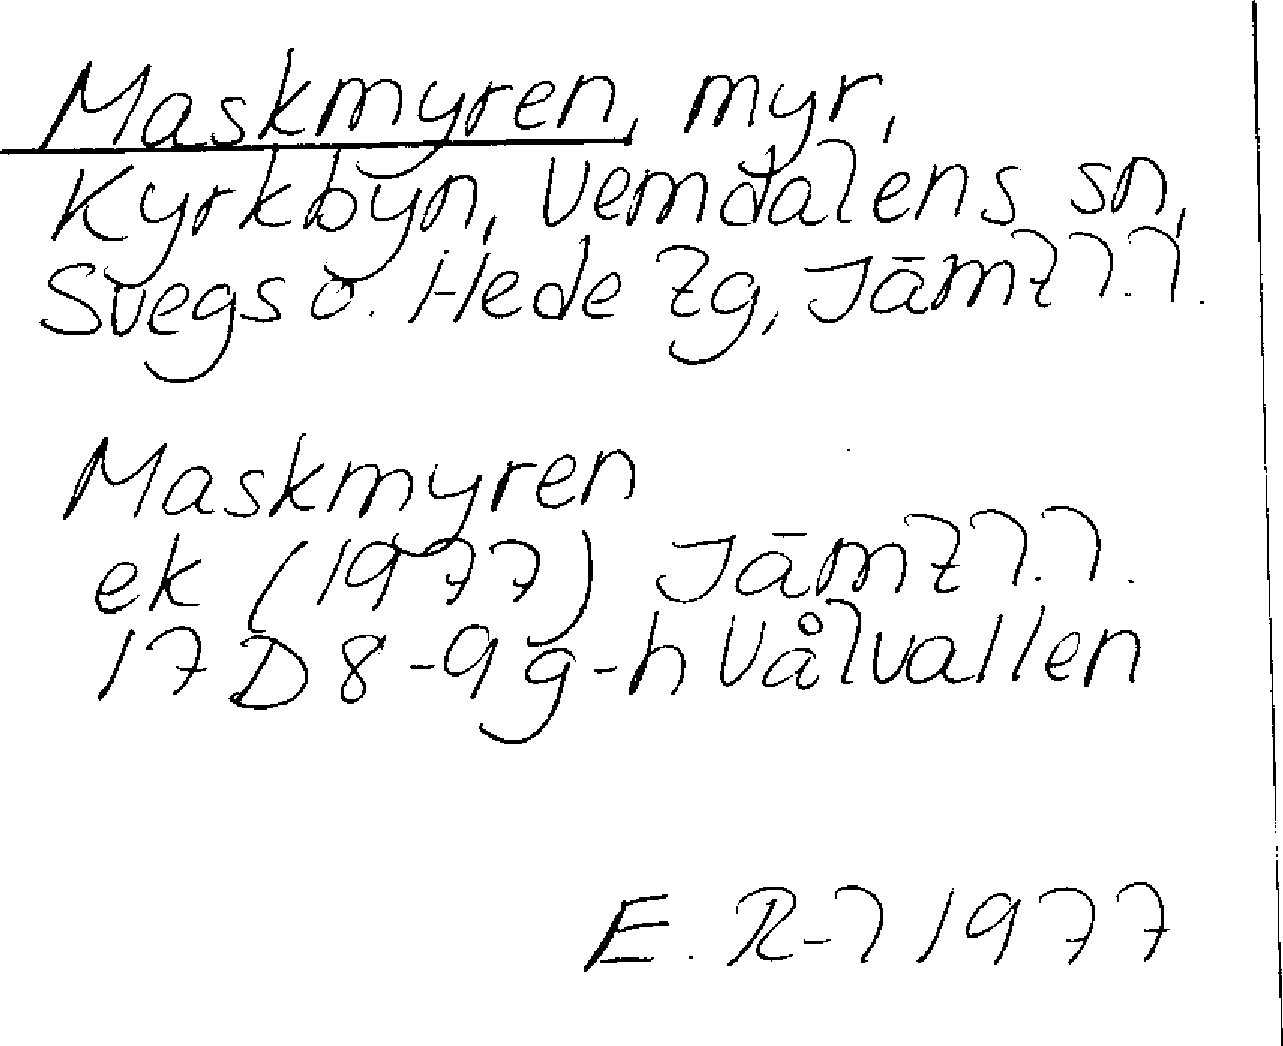 Maskmyren, myr,
Kyrkbyn, Vemdalens sn,
Svegs o. Hede tg, Jämtl.l.
Maskmyren
ek (1977) Jämtl.l.
17 D 8-9 g-h Vålvallen
E. R-l 1977